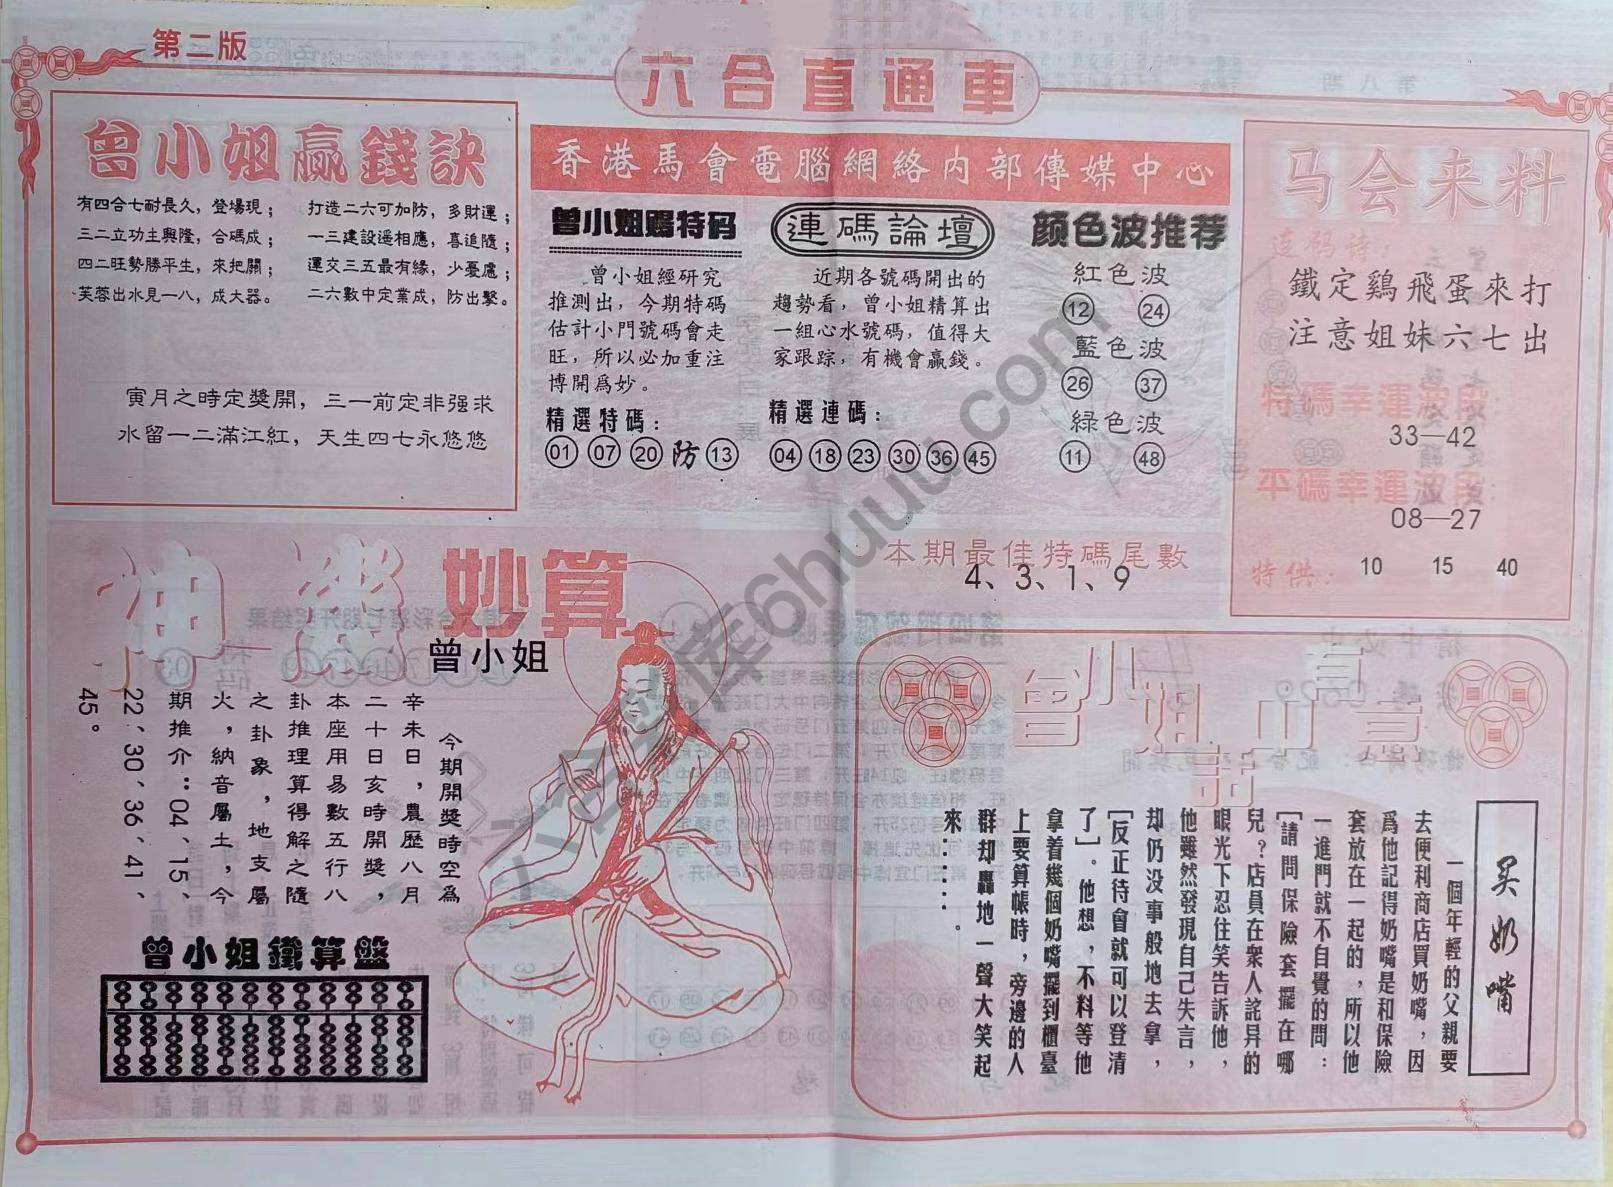 第二版
六合直通車
曾小姐贏錢訣
有四合七耐長久，登場現；
三二立功主興隆，合碼成；
四二旺勢勝平生，來把關；
芙蓉出水見一八，成大器。
打造二六可加防，多財運；
一三建設遥相應，喜追隨；
運交三五最有緣，少憂慮；
二六數中定業成，防出擊。
寅月之時定獎開，三一前定非强求
水留一二滿江紅，天生四七永悠悠
香港馬會電腦網絡内部傳媒中心
曾小姐赐特码
曾小姐經研究
推測出，今期特碼
估計小門號碼會走
旺，所以必加重注
博開爲妙。
精選特碼：
01 07 20 防 13
連碼論壇
近期各號碼開出的
趨勢看，曾小姐精算出
一組心水號碼，值得大
家跟踪，有機會贏錢。
精選連碼：
04 18 23 30 36 45
颜色波推荐
紅色波
12 24
藍色波
26 37
緑色波
11 48
马会来料
鐵定鷄飛蛋來打
注意姐妹六七出
特碼幸運波段：
33—42
平碼幸運波段：
08—27
特供：10 15 40
本期最佳特碼尾數
4、3、1、9
妙算
曾小姐
今期開獎時空爲
辛未日，農歷八月
二十日亥時開獎，
本座用易數五行八
卦推理算得解之隨
之卦象，地支屬
火，納音屬土，今
期推介：04、15、
22、30、36、41、
45。
曾小姐鐵算盤
曾小姐
买奶嘴
一個年輕的父親要
去便利商店買奶嘴，因
爲他記得奶嘴是和保險
套放在一起的，所以他
一進門就不自覺的問：
[請問保險套擺在哪
兒？店員在衆人詫异的
眼光下忍住笑告訴他，
他雖然發現自己失言，
却仍没事般地去拿，
[反正待會就可以登清
了]。他想，不料等他
拿着幾個奶嘴擺到櫃臺
上要算帳時，旁邊的人
群却轟地一聲大笑起
來………。
六合皇库6huuu.com